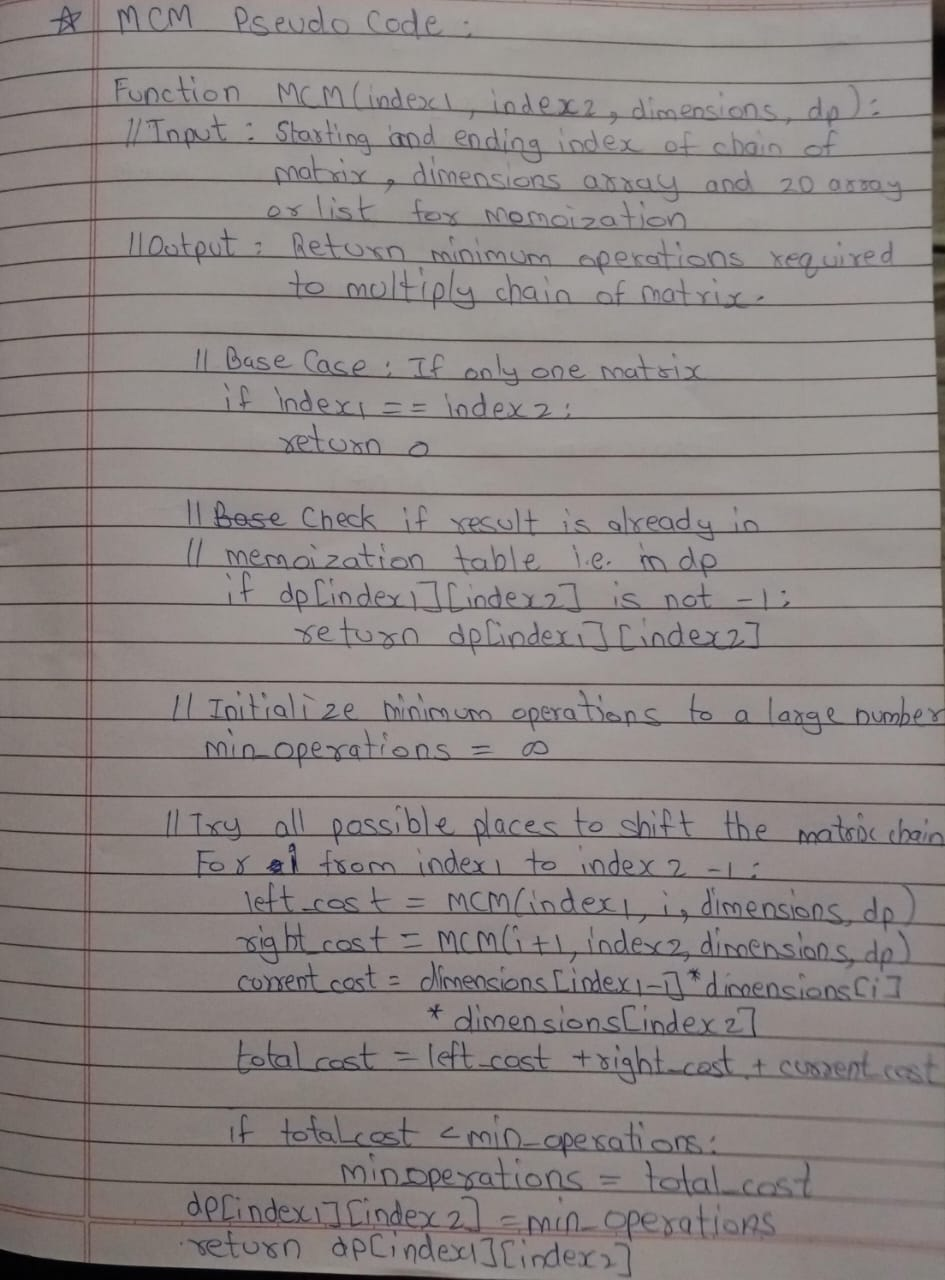 ☆ MCM Pseudo Code :
Function MCM(index1, index2, dimensions, dp):
//Input : Starting and ending index of chain of
matrix, dimensions array and 2D array
or list for Momoization
//Output : Return minimum operations required
to multiply chain of matrix.
// Base Case : If only one matrix
if index1 == index2:
return 0
// Base Check if result is already in
// memoization table i.e. in dp
if dp[index1][index2] is not -1:
return dp[index1][index2]
// Initialize minimum operations to a large number
min_operations = ∞
// Try all possible places to shift the matrix chain
For i from index1 to index2 -1:
left_cost = MCM(index1, i, dimensions, dp)
right_cost = MCM(i+1, index2, dimensions, dp)
current_cost = dimensions[index1-1] * dimensions[i]
* dimensions[index2]
total_cost = left_cost + right_cost + current_cost
if total_cost < min_operations:
min_operations = total_cost
dp[index1][index2] = min_operations
return dp[index1][index2]